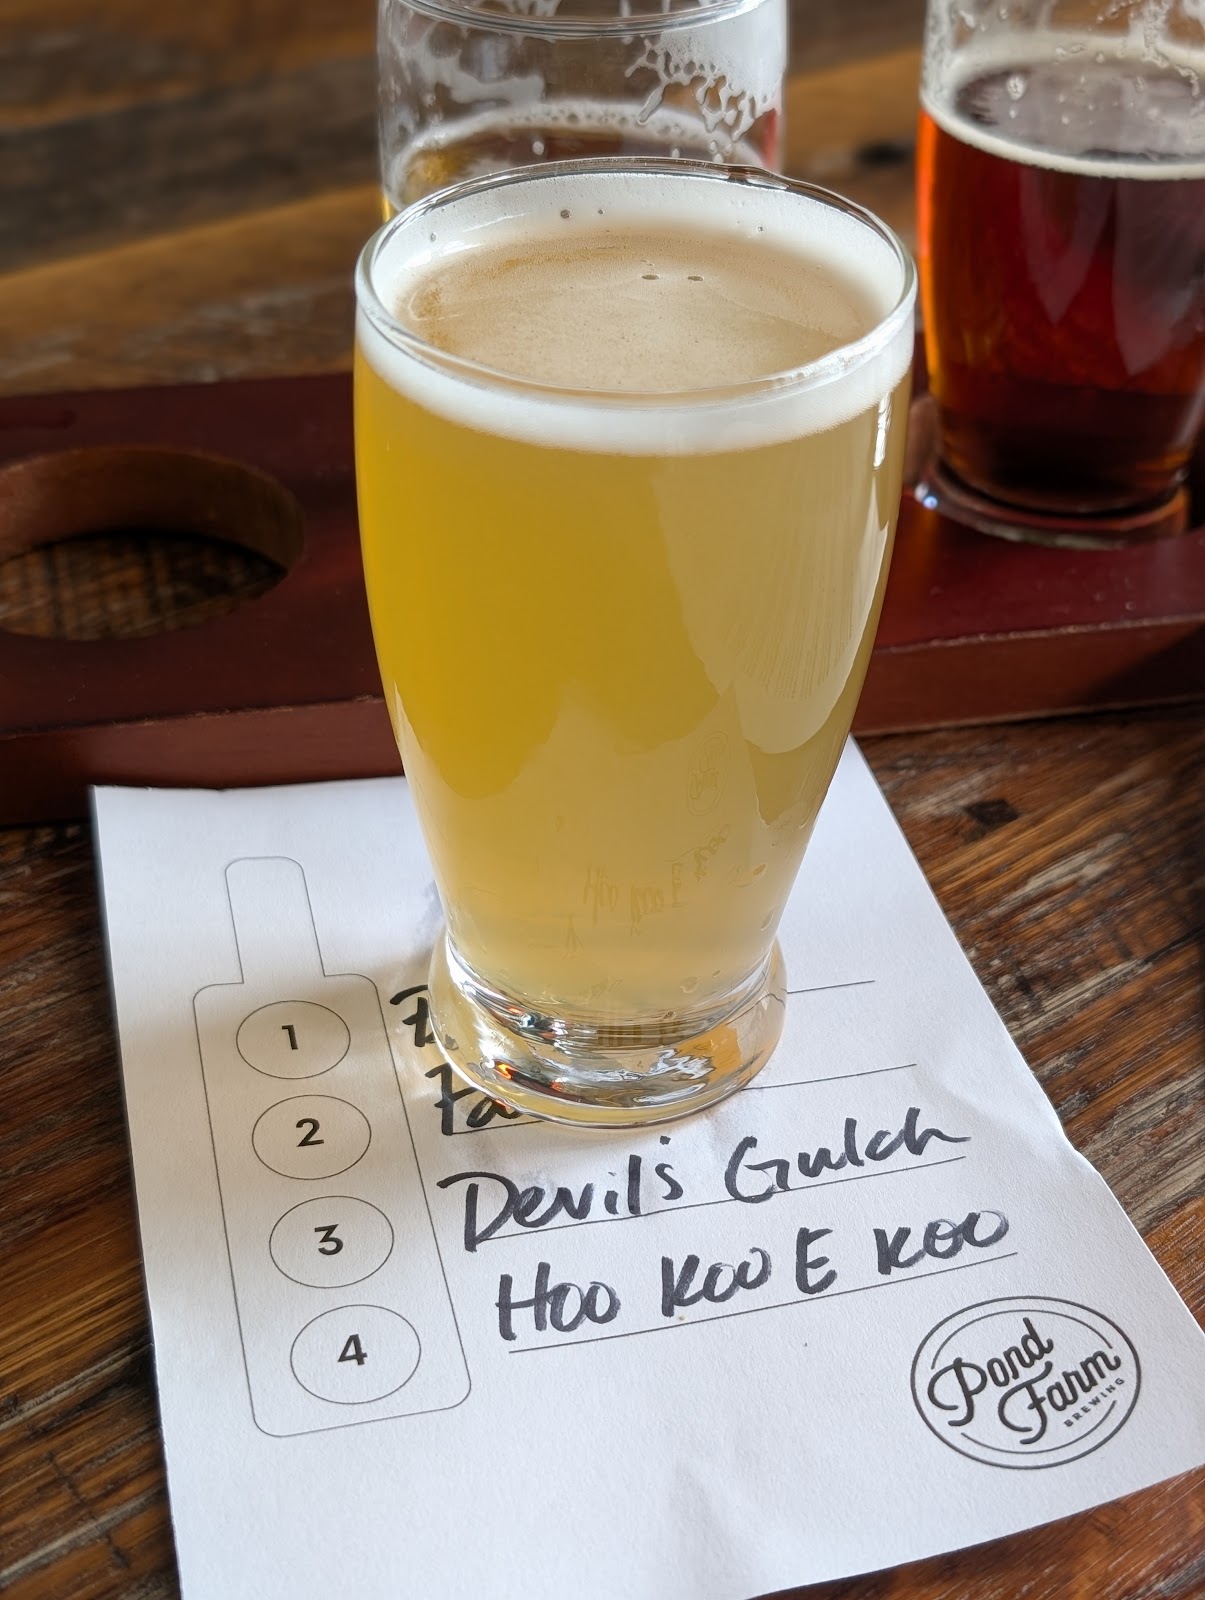 1
2
3 Devil's Gulch
4 Hoo Koo E Koo
Pond
Farm
BREWING